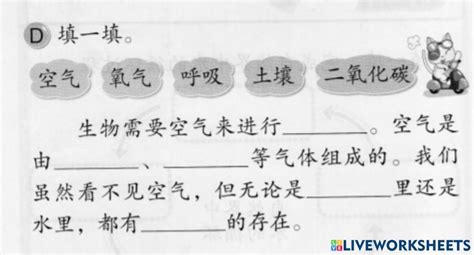 D 填一填。
空气 氧气 呼吸 土壤 二氧化碳
生物需要空气来进行________。空气是
由________、________等气体组成的。我们
虽然看不见空气，但无论是________里还是
水里，都有________的存在。
LIVEWORKSHEETS